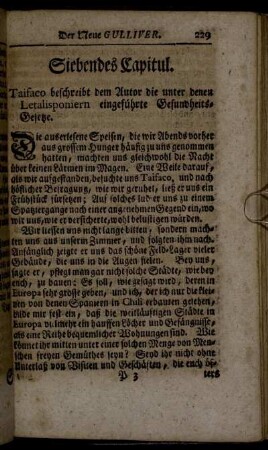 Der Neue GULLIVER. 229
Siebendes Capitul.
Taifaco beschreibt dem Autor die unter denen
Letalisponiern eingeführte Gesundheits-
Gesetze.
Die auserlesene Speisen, die wir Abends vorher
aus grossem Hunger häufig zu uns genommen
hatten, machten uns gleichwohl die Nacht
über keinen Lärmen im Magen. Eine Weile darauf,
als wir aufgestanden, besuchte uns Taifaco, und nach
höflicher Befragung, wie wir geruhet, ließ er uns ein
Frühstück fürsetzen; Auf solches lud er uns zu einem
Spaziergange nach einer angenehmen Gegend ein, wo
wir uns, wie er versicherte, wohl belustigen würden.
Wir liessen uns nicht lange bitten, sondern mach-
ten uns aus unserm Zimmer, und folgten ihm nach.
Anfänglich zeigte er uns das schöne Feld-Lager vieler
Gebäude, die uns in die Augen fielen. Bey uns,
sagte er, pflegt man gar nicht solche Städte, wie bey
euch, zu bauen: Es soll, wie gesagt wird, deren in
Europa sehr grosse geben, und ich, der ich nur die klei-
nen von denen Spaniern in Chili erbauten gesehen,
bilde mir fest ein, daß die weitläuftigen Städte in
Europa vielmehr ein hauffen Löcher und Gefängnisse,
als eine Reihe bequemlicher Wohnungen sind. Wie
könnet ihr mitten unter einer solchen Menge von Men-
schen freyen Gemüthes seyn? Seyd ihr nicht ohne
Unterlaß von Visiten und Geschäften, die euch öf-
P 3 ters